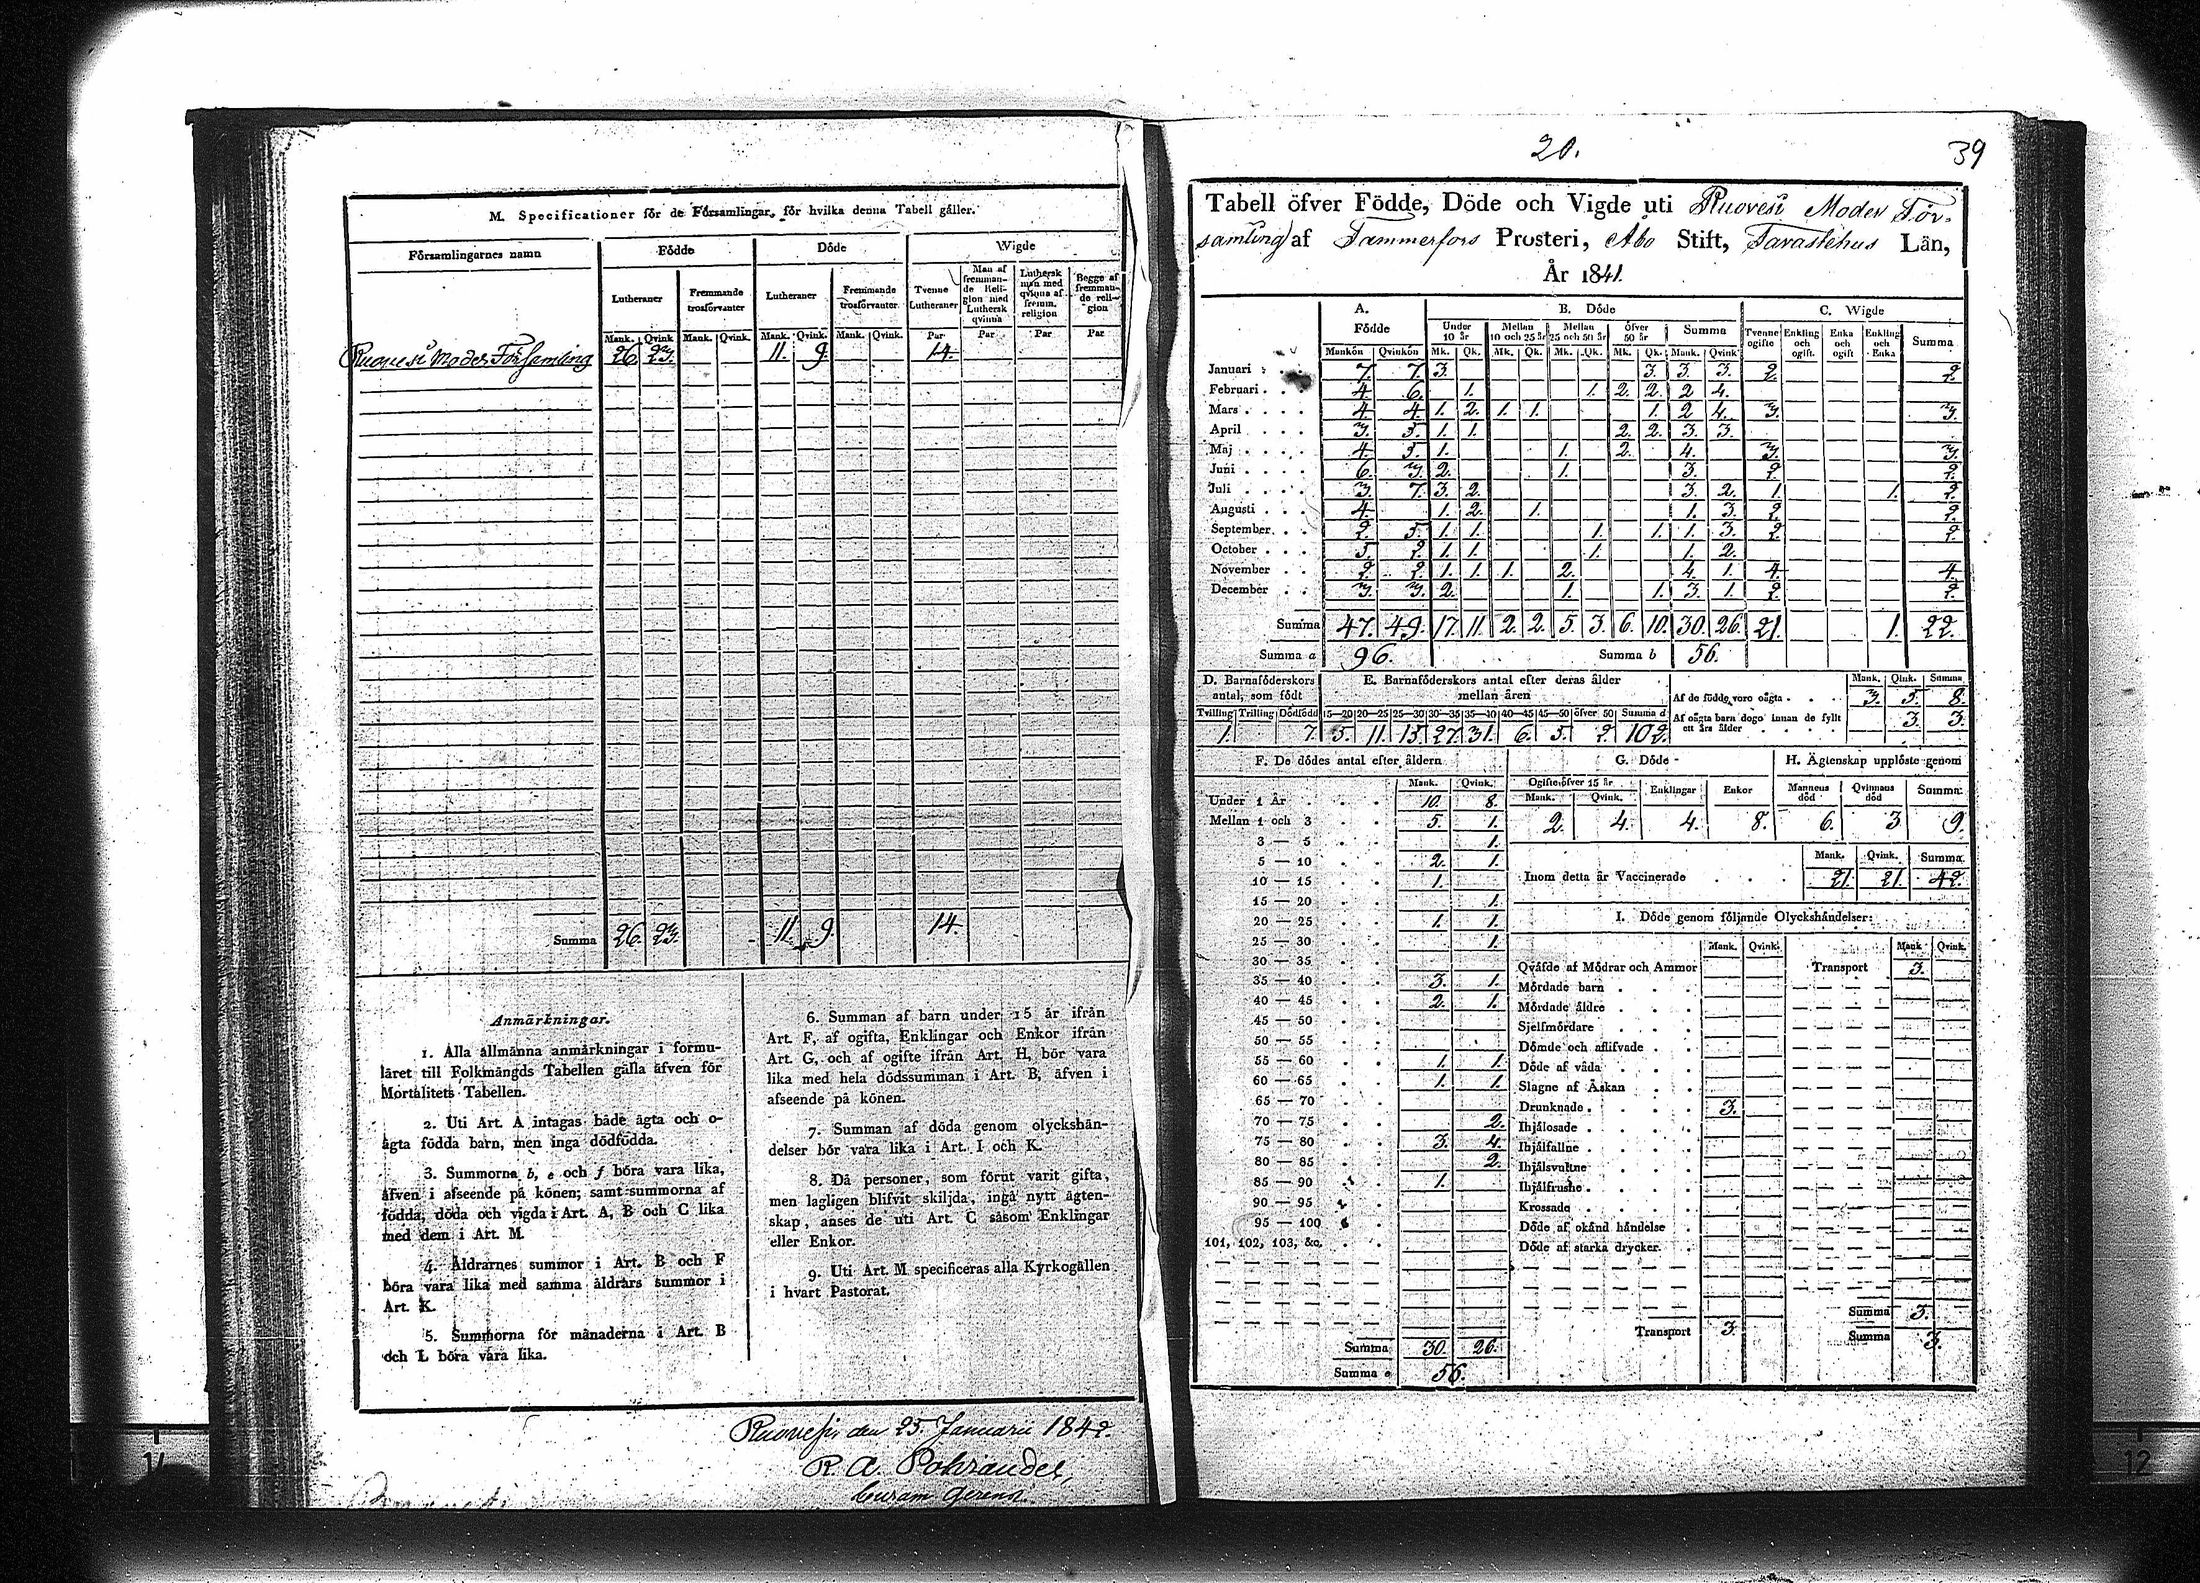 M. Specificationer för de Församlingar, för hvilka denna Tabell gäller.
Församlingarnes namn Födde Döde Wigde
Lutheraner Fremmande trosförvanter Lutheraner Fremmande trosförvanter Tvenne Lutheraner Man af fremmande Religion med Luthersk qvinna Luthersk man med qvinna af fremm. religion Begge af fremmande religion
Mank. Qvink. Mank. Qvink. Mank. Qvink. Mank. Qvink. Par Par Par Par
Ruovesi Moder Församling 26. 23. 11. 9. 14.
Summa 26. 23. 11. 9. 14.
Anmärkningar.
1. Alla allmänna anmärkningar i formu-
läret till Folkmängds Tabellen gälla äfven för
Mortalitets Tabellen.
2. Uti Art. A intagas både ägta och o-
ägta födda barn, men inga dödfödda.
3. Summorna b, e och f böra vara lika,
äfven i afseende på könen; samt summorna af
födda, döda och vigda i Art. A, B och C lika
med dem i Art. M.
4. Åldrarnes summor i Art. B och F
böra vara lika med samma åldrars summor i
Art. K.
5. Summorna för månaderna i Art. B
och L böra vara lika.
6. Summan af barn under 15 år ifrån
Art. F, af ogifta, Enklingar och Enkor ifrån
Art. G, och af ogifte ifrån Art. H, bör vara
lika med hela dödssumman i Art. B, äfven i
afseende på könen.
7. Summan af döda genom olyckshän-
delser bör vara lika i Art. I och K.
8. Då personer, som förut varit gifta,
men lagligen blifvit skiljda, ingå nytt ägten-
skap, anses de uti Art. C såsom Enklingar
eller Enkor.
9. Uti Art. M specificeras alla Kyrkogällen
i hvart Pastorat.
Ruovesi, den 25. Januarii 1842.
R. A. Pohrander,
Curam Gerens.
20.
39
Tabell öfver Födde, Döde och Vigde uti Ruovesi Moder För-
samling af Tammerfors Prosteri, Åbo Stift, Tavastehus Län,
År 1841.
A. Födde B. Döde C. Wigde
Under 10 år Mellan 10 och 25 år Mellan 25 och 50 år Öfver 50 år Summa Tvenne ogifte Enkling och ogift. Enka och ogift Enkling och Enka Summa
Mankön Qvinkön Mk. Qk. Mk. Qk. Mk. Qk. Mk. Qk. Mank. Qvink.
Januari 7. 7. 3. 3. 3. 3. 2. 2.
Februari 4. 6. 1. 1. 2. 2. 2 4.
Mars 4. 4. 1. 2. 1. 1. 1. 2 4. 3. 3.
April 3. 5. 1. 1. 2. 2. 3. 3.
Maj 4. 5. 1. 1. 2. 4. 3. 3.
Juni 6. 3 2. 1. 3. 2. 2.
Juli 3. 7. 3. 2. 3. 2. 1. 1. 2.
Augusti 4. 1. 2. 1. 1. 3. 2. 2.
September 2. 5. 1. 1. 1. 1. 1. 3. 2. 2.
October 5. 2. 1. 1. 1. 1. 2.
November 2. 2. 1. 1. 1. 2. 4. 1. 4. 4.
December 3. 3. 2. 1. 1. 3. 1. 2. 2.
Summa 47. 49. 17. 11. 2. 2. 5. 3. 6. 10. 30. 26. 21. 1. 22.
Summa a 96. Summa b 56.
D. Barnaföderskors antal, som födt
Tvilling Trilling Dödfödd
1. 7.
E. Barnaföderskors antal efter deras ålder mellan åren
15—20 20—25 25—30 30—35 35—40 40—45 45—50 öfver 50 Summa d
5. 11. 15. 27. 31. 6. 5. 2. 102.
Mank. Qink. Summa
Af de födde voro oägta 3. 5. 8.
Af oägta barn dogo innan de fyllt ett års ålder 3. 3.
F. De dödes antal efter åldern
Mank. Qvink.
Under 1 År 10. 8.
Mellan 1 och 3 5. 1.
3 — 5 1.
5 — 10 2. 1.
10 — 15 1.
15 — 20 1.
20 — 25 1. 1.
25 — 30 1.
30 — 35
35 — 40 3. 1.
40 — 45 2. 1.
45 — 50
50 — 55
55 — 60 1. 1.
60 — 65 1. 1.
65 — 70
70 — 75 2.
75 — 80 3. 4.
80 — 85 2.
85 — 90 1.
90 — 95
95 — 100
101, 102, 103, &c.
Summa 30. 26.
Summa e 56.
G. Döde
Ogifte öfver 15 år Enklingar Enkor
Mank. Qvink.
2. 4. 4. 8.
H. Ägtenskap upplöste genom
Mannens död Qvinnans död Summa
6. 3 9.
Mank. Qvink. Summa
Inom detta år Vaccinerade 21. 21. 42.
I. Döde genom följande Olyckshändelser:
Mank. Qvink. Mank Qvink.
Qväfde af Mödrar och Ammor Transport 3.
Mördade barn
Mördade äldre
Sjelfmördare
Dömde och aflifvade
Döde af våda
Slagne af Åskan
Drunknade 3.
Ihjälosade
Ihjälfallne
Ihjälsvultne
Ihjälfrusne
Krossade
Döde af okänd händelse
Döde af starka drycker
Summa 3.
Transport 3. Summa 3.
12